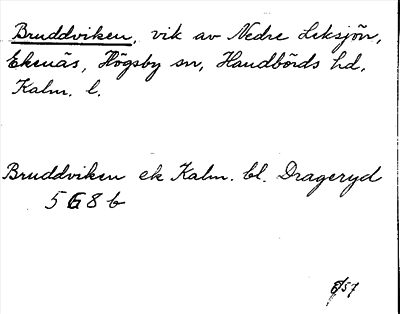 Bruddviken, vik av Nedre Leksjön,
Ekenäs, Högsby sn, Handbörds hd,
Kalm. l.
Bruddviken ek Kalm. bl. Drageryd
5 G 8 b